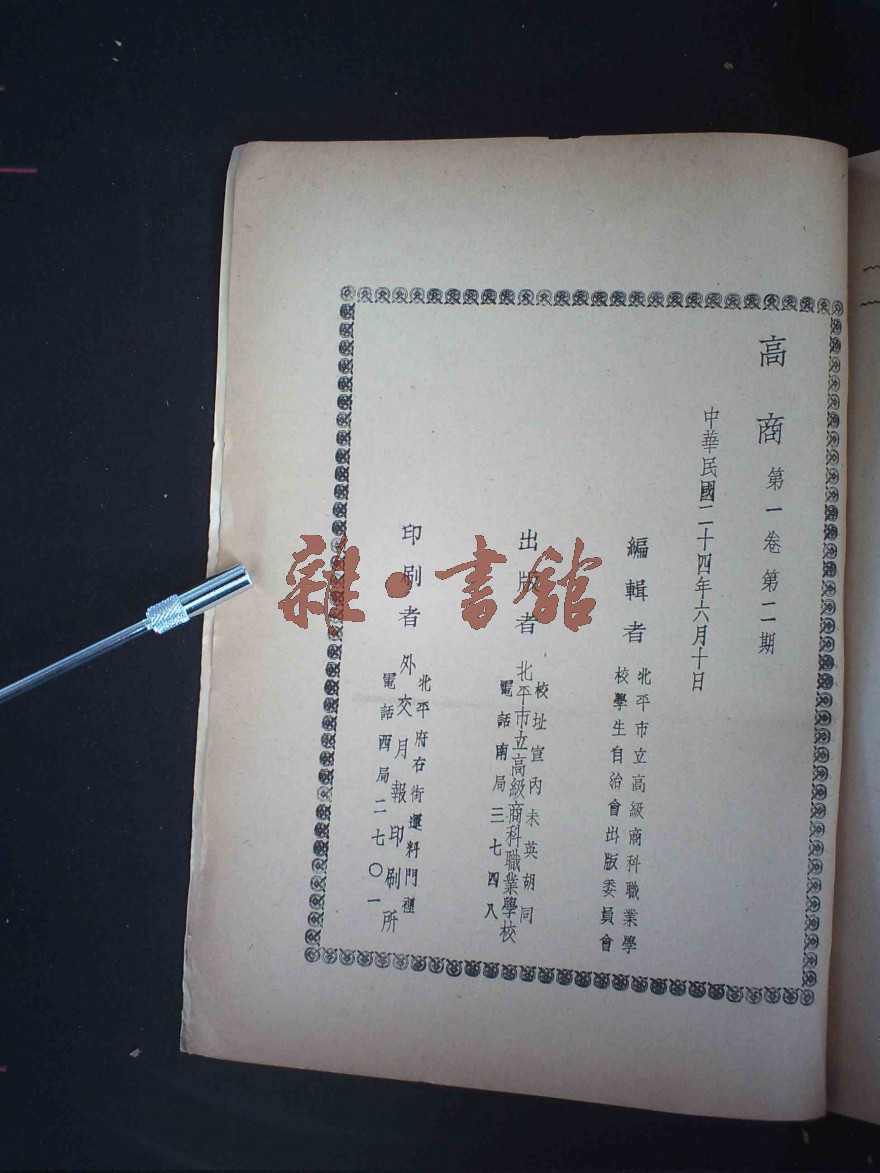 高商 第一卷第二期
中華民國二十四年六月十日
編輯者 北平市立高級商科職業學
校學生自治會出版委員會
出版者 北平市立高級商科職業學校
校址宣內未英胡同
電話南局三七四八
印刷者 外交月報印刷所
北平府右街運料門裡
電話西局二七〇一
雜·書館